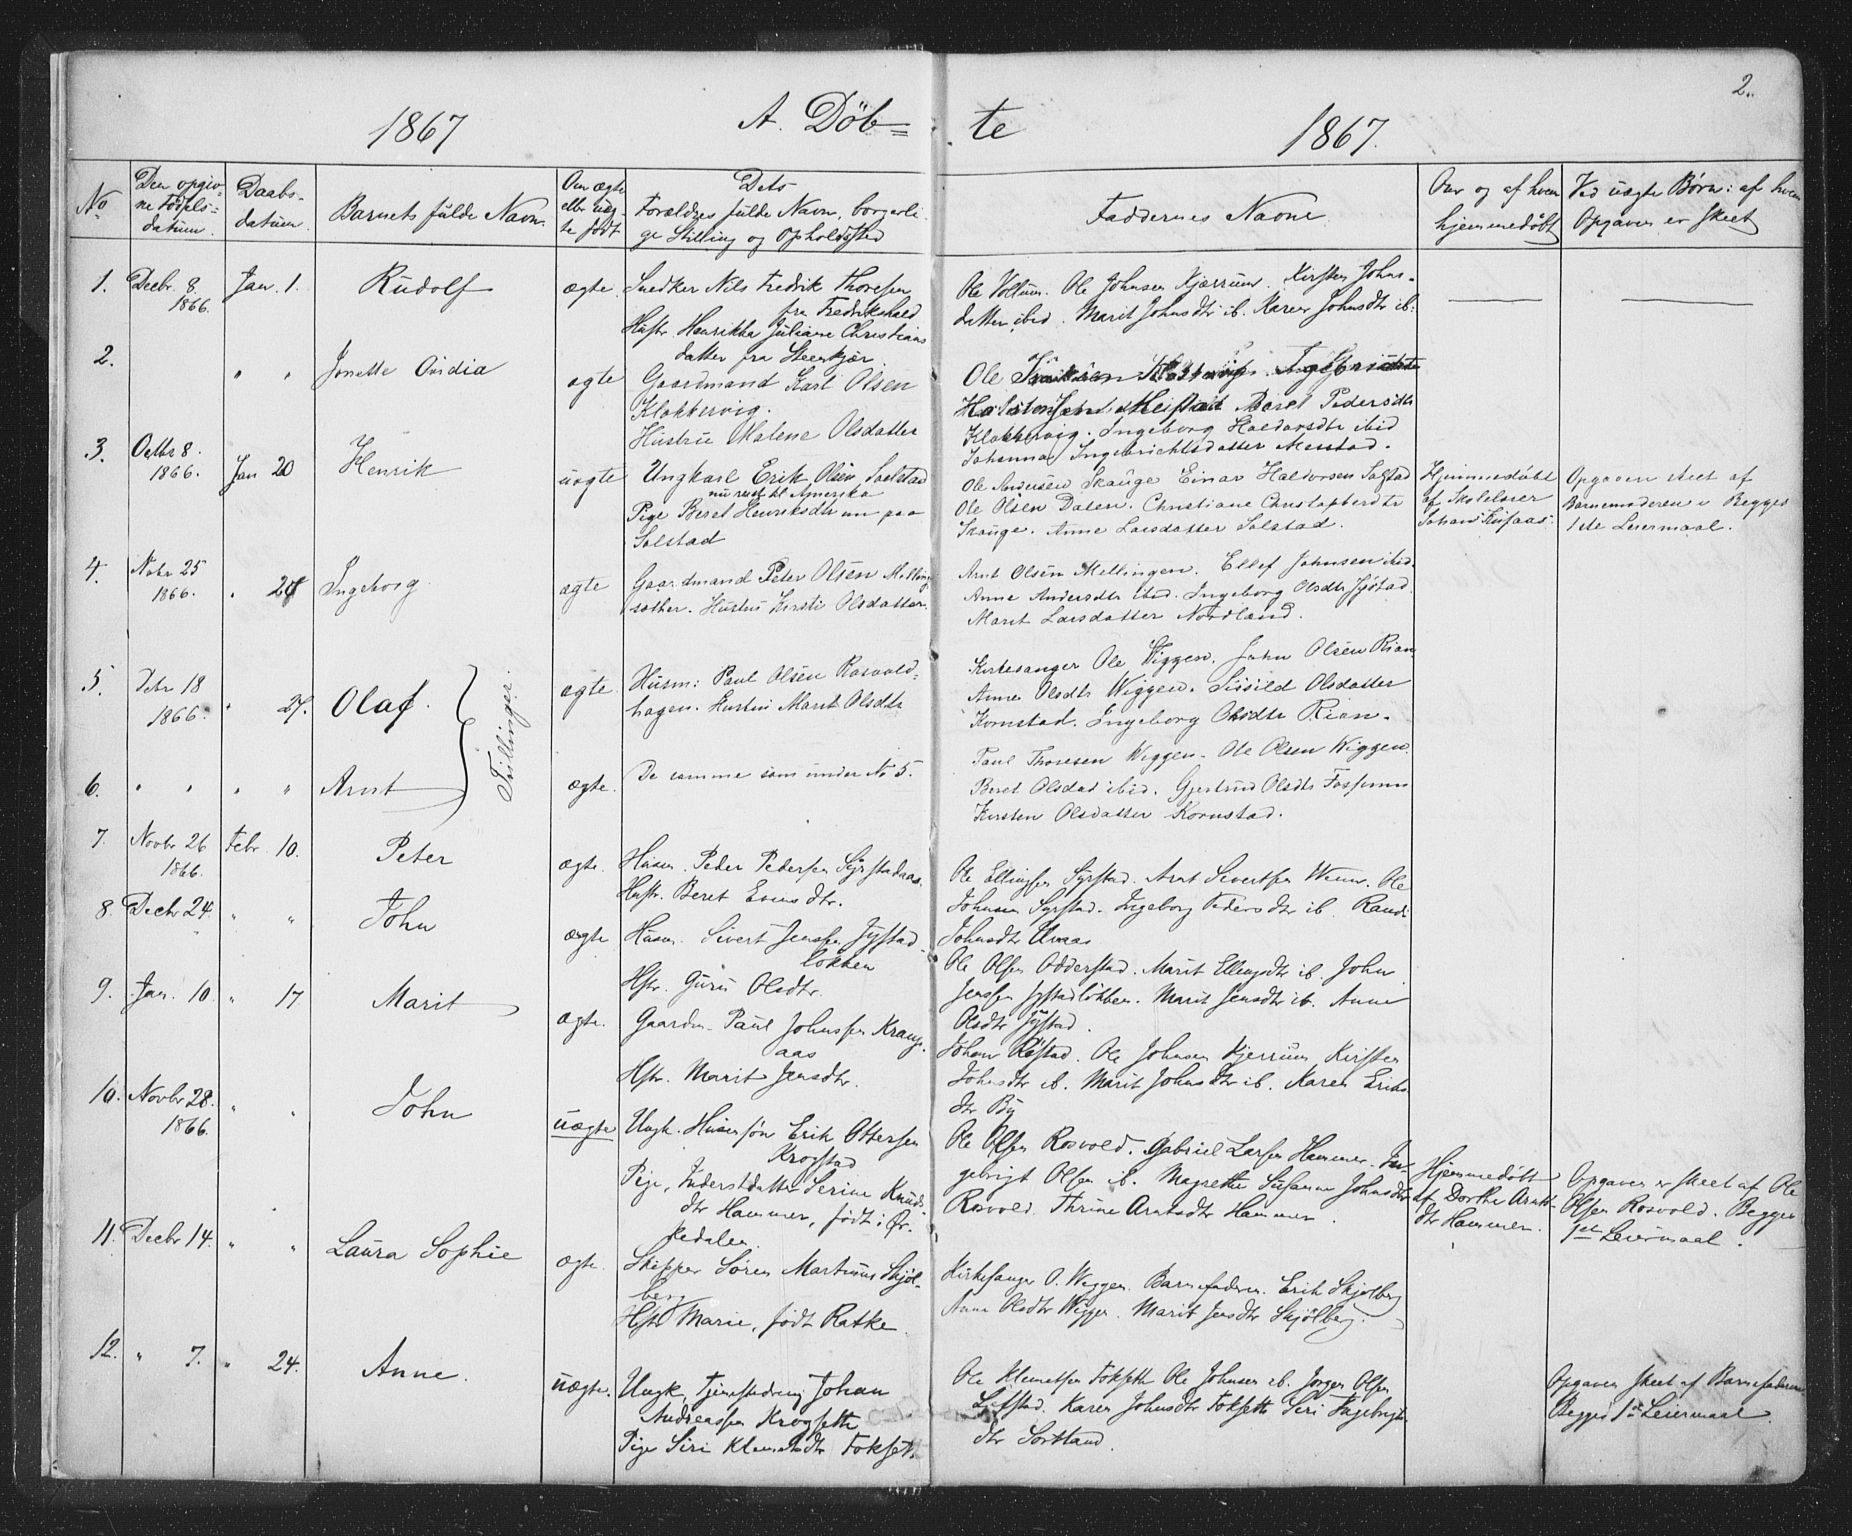 2.
1867 A. Döb= te 1867.
No
Den opgiv-
ne Födsels-
datum.
Daabs-
datum.
Barnets fulde Navn.
Om ægte
eller uæg-
te født
Dets
Forældres fulde Navn, borgerli-
ge Stilling og Opholdssted
Faddernes Navne.
Om og af hvem
hjemmedöbt
Ved uægte Børn: af hvem
Opgaven er skeet
1. Decbr. 8. 1866. Jan. 1. Rudolf ægte.
Snedker Nils Fredrik Thoresen
fra Fredrikshald
Hustr. Henrikka Juliane Christians
datter fra Steenkjær.
Ole Vollum. Ole Johnsen Kjærrum. Kirsten Johns-
datter ibid. Marit Johnsdtr ib. Karen Johnsdtr ib.
2. " " Jonette Ovidia ægte
Gaardmand Karl Olsen
Klokkervig.
Hustru Malene Olsdatter
Ole
Beret Pedersdtr
Klokkervig. Ingeborg Haldorsdtr ibid
Johanna Ingebrichtsdatter Messtad.
3. Octbr 8. 1866. Jan 20 Henrik uægte
Ungkarl Erik Olsen Solstad
nu reist til Amerika
Pige Beret Henriksdtr nu paa
Solstad
Ole Andersen Skauge Einar Haldorsen Solstad
Ole Olsen Dalen. Christiane Christophersdtr
Skauge. Anne Larsdatter Solstad.
Hjemmedöbt
af Skolelærer
Johan
Opgaven skeet af
Barnemoderen Begges
1ste Leiermaal.
4. Nobr 25 1866. " 20 Ingeborg ægte
Gaardmand Peter Olsen Melling-
sæther. Hustru Kirsti Olsdatter.
Arnt Olsen Mellingen. Ellef Johnsen ibid.
Anne Andersdtr ibid. Ingeborg Olsdtr Jystad
Marit Larsdatter Nordland.
5. Debr 18 1866. " 27. Olaf. ægte
Tvillinger.
Husm: Paul Olsen Rosvold-
hagen. Hustru Marit Olsdtr
Kirkesanger Ole Wiggen. John Olsen Rian
Anne Olsdtr Wiggen. Sissild Olsdatter
Kornstad. Ingeborg Olsdtr Rian.
6. " " " " Arnt ægte.
De samme som under No 5.
Paul Thoresen Wiggen. Ole Olsen Wiggen.
Beret Olsdad ibid. Gjertrud Olsdtr Fossmm
Kirsten Olsdatter Kornstad.
7. Novbr 26 1866. Febr. 10. Peter ægte.
Husm. Peder Pedersen Syrstadaas
Hustr. Beret Evensdtr.
Ole Ellingsen Syrstad. Arnt Sivertsen Wenn. Ole
Johnsen Syrstad. Ingeborg Pedersdtr ib. Randi
Johnsdtr
8. Decbr 24. " " John ægte
Husm. Sivert Jenssen Jystad
løkken
Hstr. Guru Olsdtr.
Ole Olsen Odderstad. Marit Ellingsdtr ib. John
Jenssen Jystadløkken. Marit Jensdtr ib. Anne
Olsdtr Jystad.
9. Jan. 10. " 17 Marit ægte.
Gaardm. Paul Johnssen Krangs-
aas
Hstr. Marit Jensdtr.
Johan Røstad. Ole Johnsen Kjerrum Kirsten
Johnsdtr ib. Marit Johnsdtr ib. Karen Eriks
dtr By
10. Novbr 28. 1866. " " John uægte
Ungk. Husmsøn Erik Ottersen
Krogstad
Pige, Inderstdatter Serine Knuds-
dtr Hammer, født i Ør-
kedalen.
Ole Olsen Rosvold. Gabriel Larsen Hammer. In-
gebrigt Olsen ib. Magrethe Susanne Johnsdtr
Rosvold. Thrine Arntsdtr Hammer.
Hjemmedöbt
af Dorthe Arnts-
dtr Hammer.
Opgaven er skeet af Ole
Olsen Rosvold. Begges
1ste Leiermaal.
11. Decbr 14. " " Laura Sophie ægte.
Skipper Sören Martinus Skjöl-
berg
Hstr Marie, født Ratke.
Kirkesanger O. Wiggen. Barnefaderen. Erik Skjölberg
Anne Olsdtr Wiggen. Marit Jensdtr Skjölberg.
12. " 7. " 24. Anne. uægte.
Ungk. Johan
Andreassen Krogsette
Pige Siri Klemetsdtr Foksæt.
Ole Klemetsen Foksetti Ole Johnsen ib. Jørgen Olsen
Karen Johnsdtr Foksetti Siri Ingebrigts
dtr Sortland.
Opgaven skeet af Barnefaderen
Begges 1ste Leiermaal.